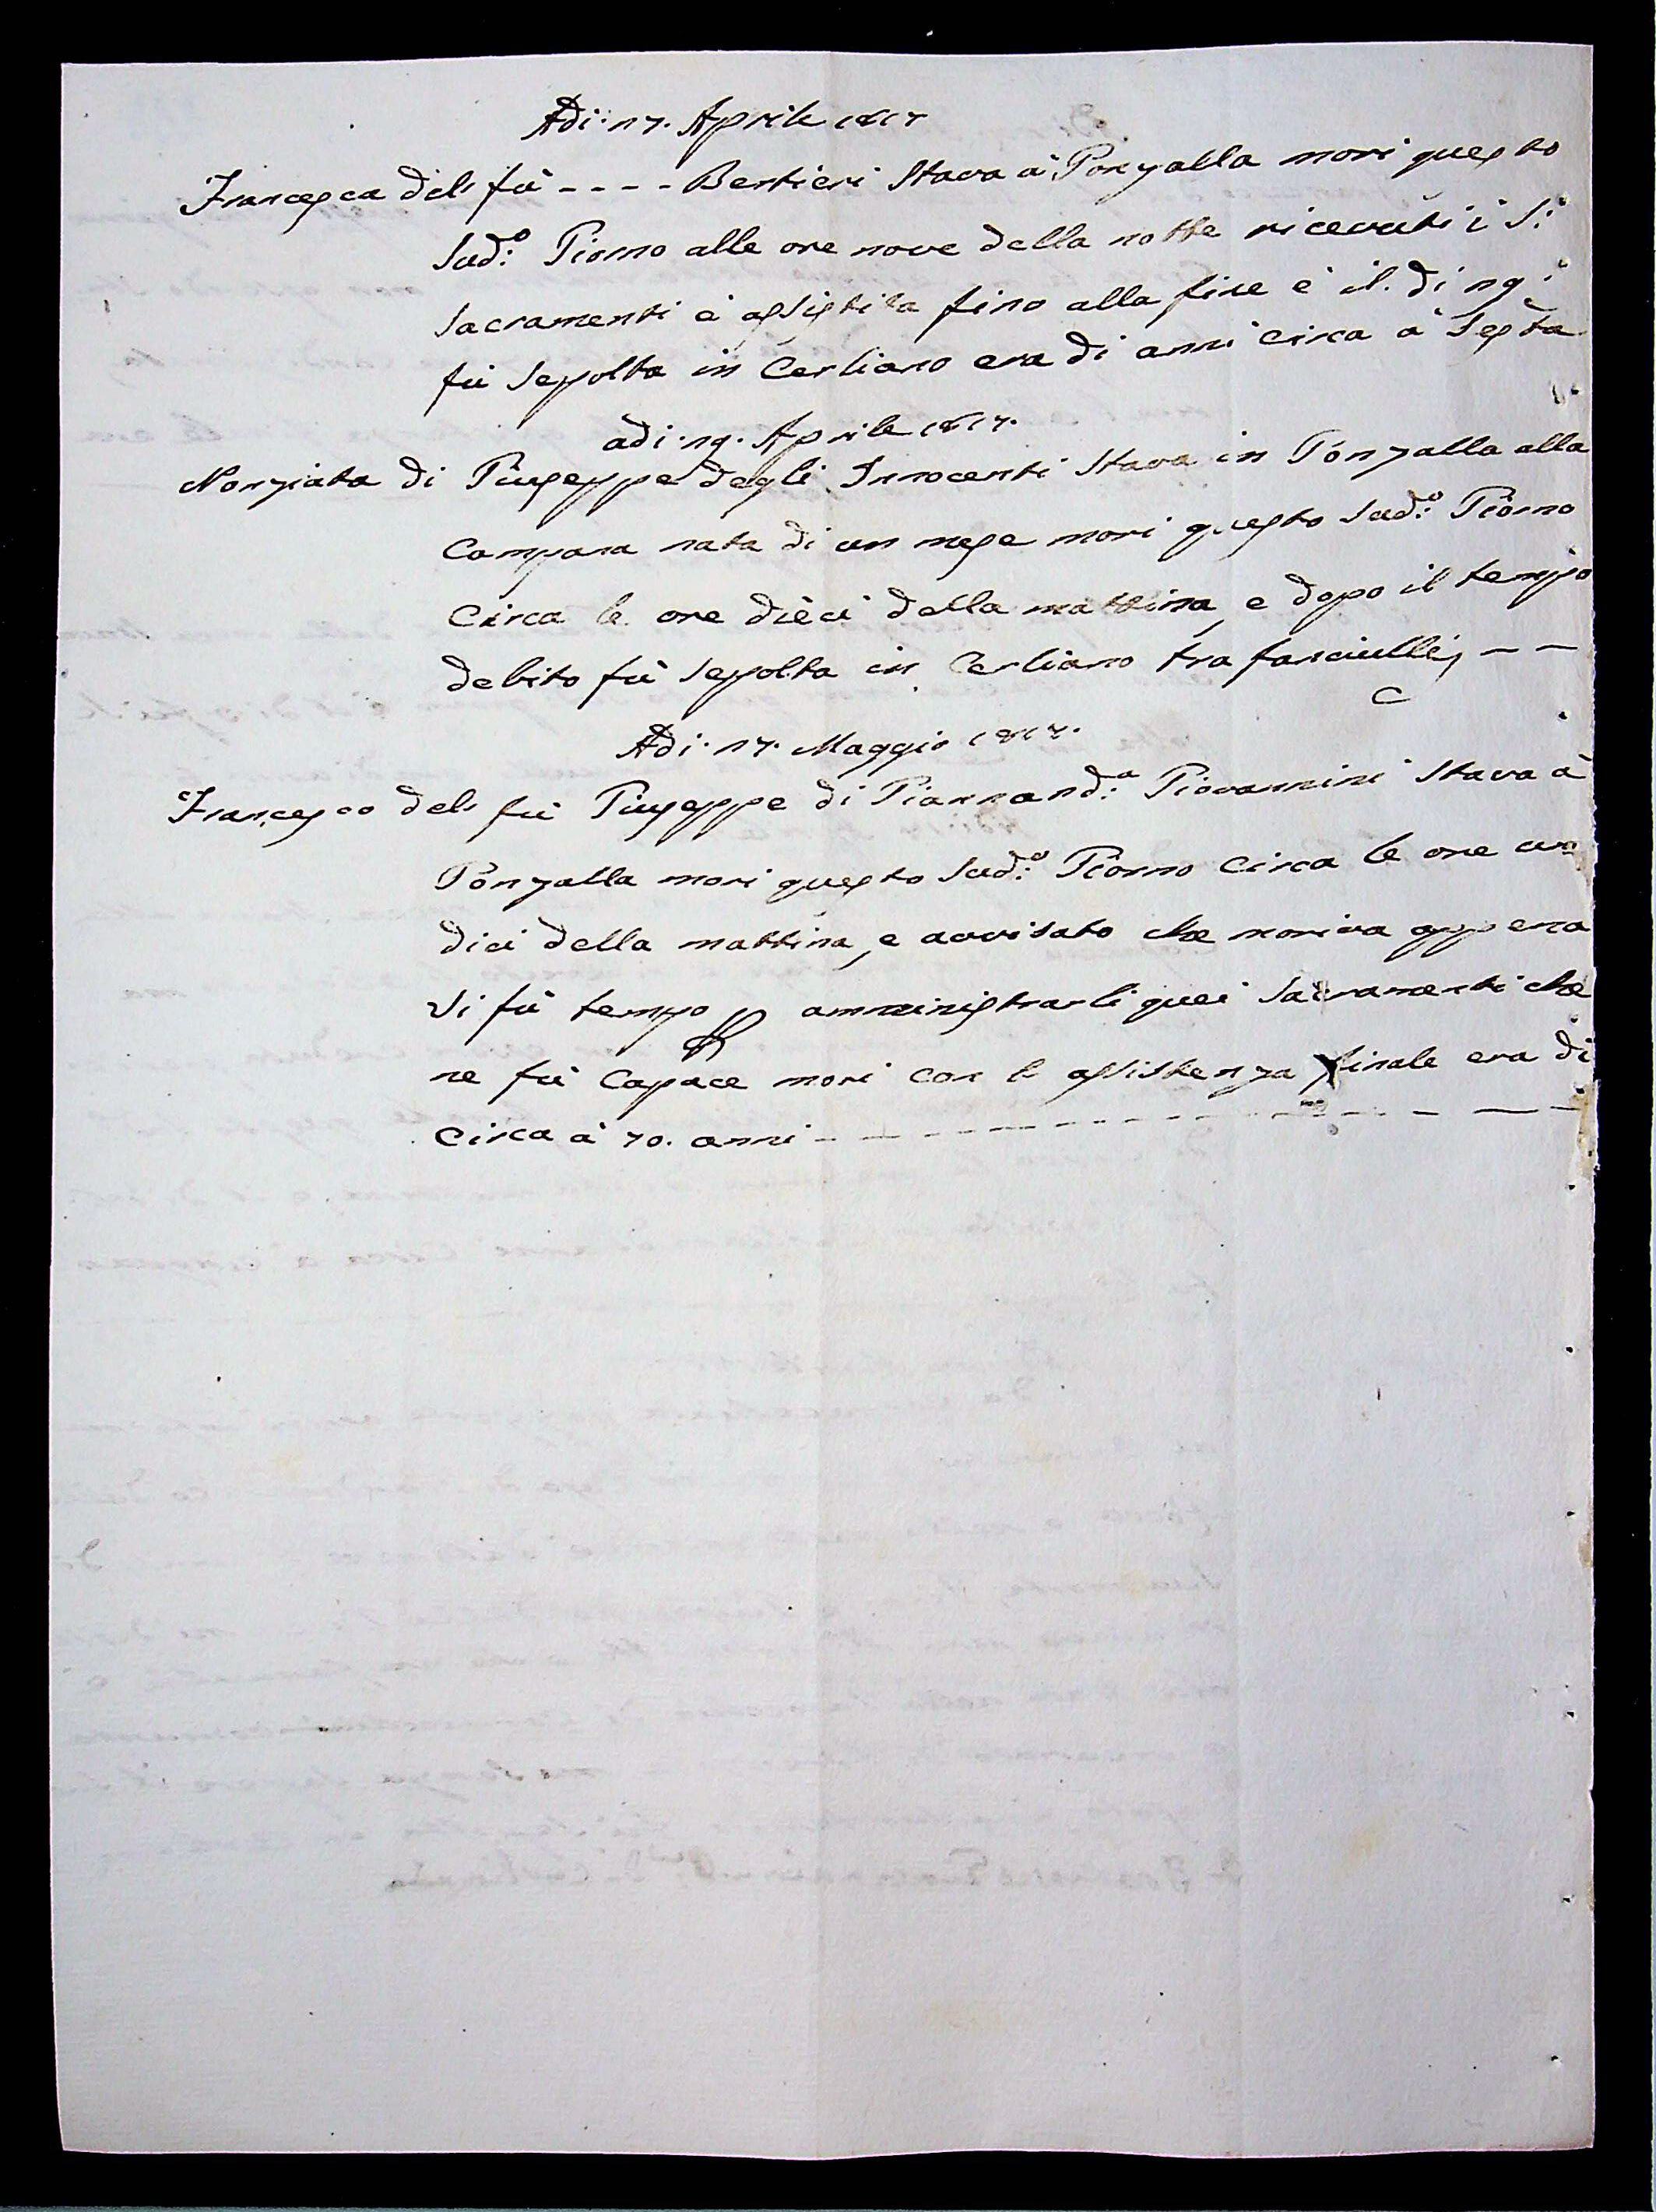 Adi: 17. Aprile 1817
Francesca del fù - - - - Bertieri stava à Ponzalla morì questo
sud:º Giorno alle ore nove della notte ricevuti i S:i
sacramenti è assistita fino alla fine è il dì 19:
fù sepolta in Cerliano era di anni circa à Sesta
adi. 19. Aprile 1817.
Nonziata di Giuseppe degli Innocenti stava in Ponzalla alla
Campana nata di un mese morì questo sud:º Giorno
circa le ore dieci della mattina, e dopo il tempo
debito fù sepolta in Cerliano tra fanciulli, - -
Adi. 17. Maggio 1817.
Francesco del fù Giuseppe di Piannand:ª Giovannini stava à
Ponzalla morì questo sud:º Giorno circa le ore un
dici della mattina, e avvisato che moriva appena
vi fù tempo p amministrarli quei sacramenti che
ne fù capace morì con l assistenza finale era di
circa à 70. anni - - - - - - - - - -